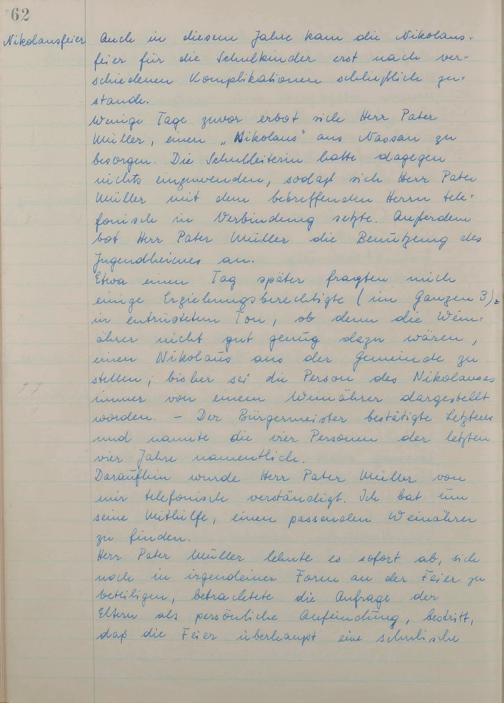 62
Nikolausfeier Auch in diesem Jahre kam die Nikolaus-
feier für die Schulkinder erst nach ver-
schiedenen Komplikationen schließlich zu-
stande.
Wenige Tage zuvor erbot sich Herr Pater
Müller, einen „Nikolaus" aus Nassau zu
besorgen. Die Schulleiterin hatte dagegen
nichts einzuwenden, sodaß sich Herr Pater
Müller mit dem betreffenden Herrn tele-
fonisch in Verbindung setzte. Außerdem
bot Herr Pater Müller die Benützung des
Jugendheimes an.
Etwa einen Tag später fragten mich
einige Erziehungsberechtigte (im Ganzen 3)
in entrüstetem Ton, ob denn die Wein-
ährer nicht gut genug dazu wären,
einen Nikolaus aus der Gemeinde zu
stellen; bisher sei die Person des Nikolauses
immer von einem Weinährer dargestellt
worden. - Der Bürgermeister bestätigte Letzteres
und nannte die vier Personen der letzten
vier Jahre namentlich.
Daraufhin wurde Herr Pater Müller von
mir telefonisch verständigt. Ich bat um
seine Mithilfe, einen passenden Weinährer
zu finden.
Herr Pater Müller lehnte es sofort ab, sich
noch in irgendeiner Form an der Feier zu
beteiligen, betrachtete die Anfrage der
Eltern als persönliche Anfeindung, bestritt,
daß die Feier überhaupt eine schulische